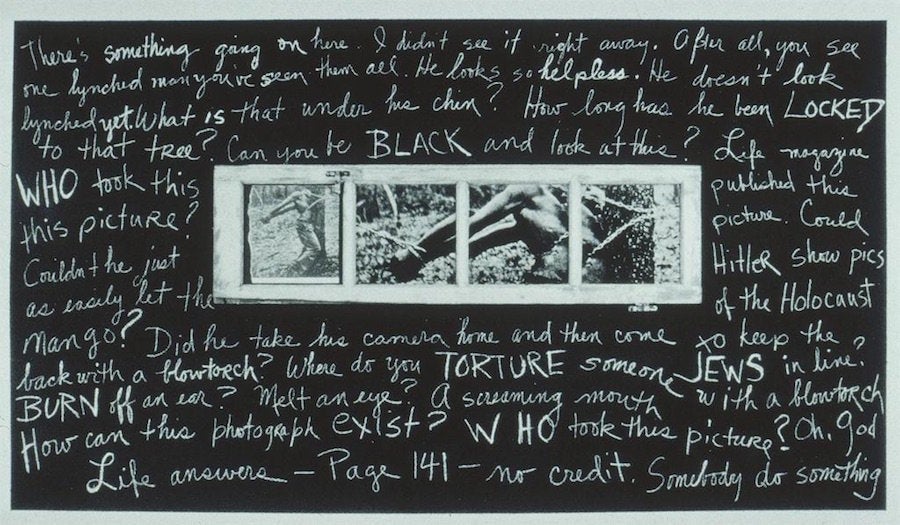 There's something going on here. I didn't see it right away. After all, you see
one lynched man you've seen them all. He looks so helpless. He doesn't look
lynched yet. What is that under his chin? How long has he been LOCKED
to that tree? Can you be BLACK and look at this? Life magazine
published this
picture. Could
Hitler show pics
of the Holocaust
to keep the
JEWS in line?
WHO took this
this picture?
Couldn't he just
as easily let the
man go? Did he take his camera home and then come
back with a blowtorch? Where do you TORTURE someone
BURN off an ear? Melt an eye? A screaming mouth with a blowtorch
How can this photograph exist? WHO took this picture? Oh, God
Life answers – Page 141 – no credit. Somebody do something